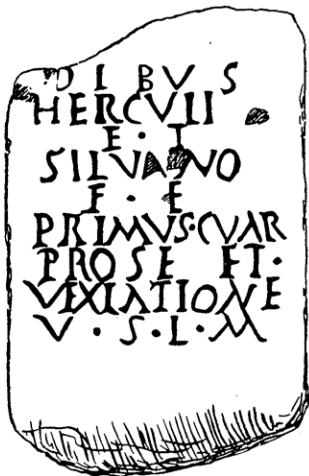 DIBVS
HERCVII
E · T
SILVANO
F · E
PRIMVS·CVAR
PROSE ET·
VEXIATIONE
V · S · L · M